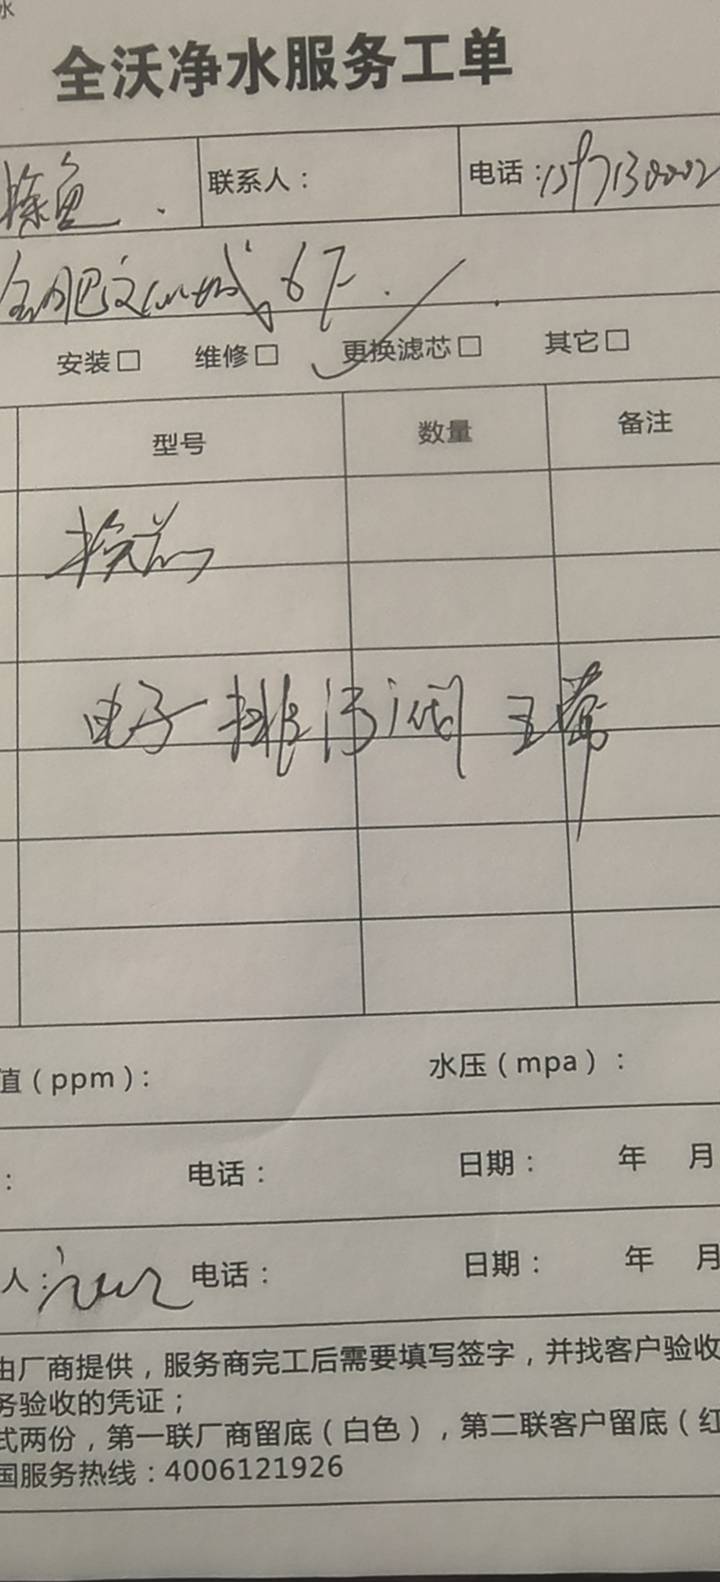 水
全沃净水服务工单
联系人： 电话：
6F
安装□ 维修□ 更换滤芯□ 其它□
型号 数量 备注
换芯
电子排污阀
值（ppm）： 水压（mpa）：
： 电话： 日期： 年 月
人： 电话： 日期： 年 月
由厂商提供，服务商完工后需要填写签字，并找客户验收
务验收的凭证；
式两份，第一联厂商留底（白色），第二联客户留底（红
国服务热线：4006121926